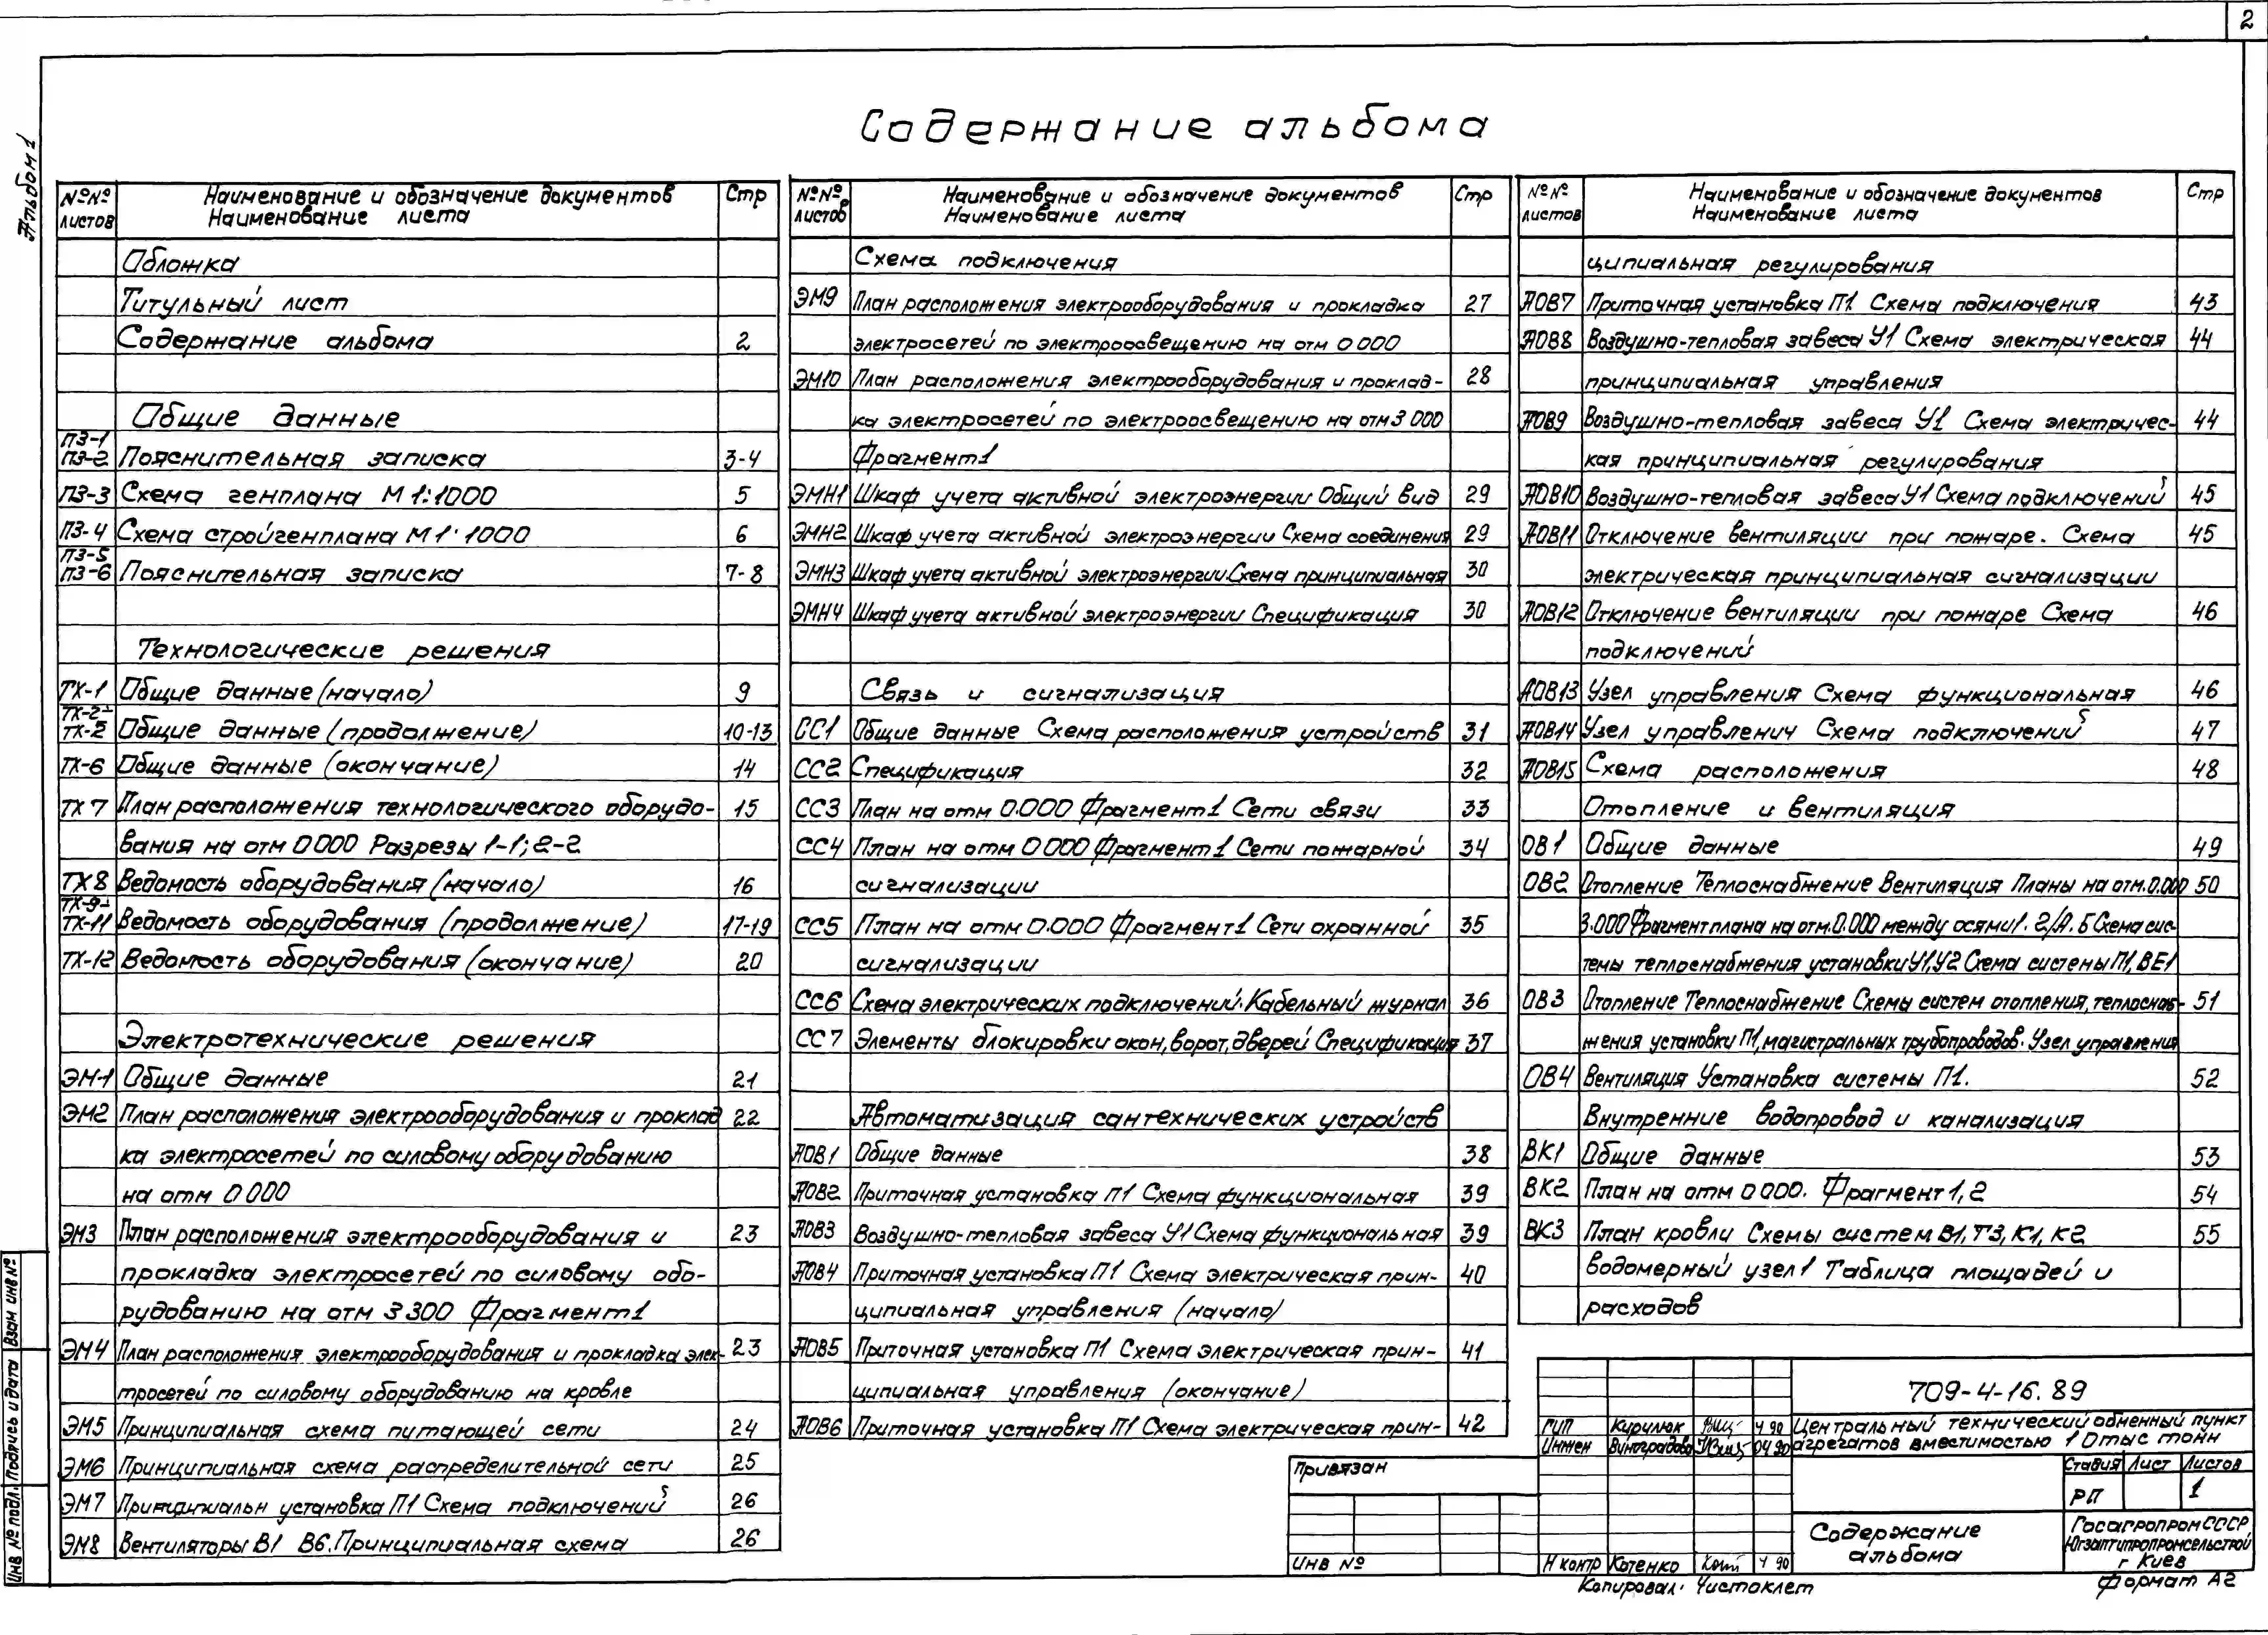 2
Альбом 1
Содержание альбома
№№ листов Наименование и обозначение документов Наименование листа Стр
Обложка
Титульный лист
Содержание альбома 2
Общие данные
ПЗ-1 ПЗ-2 Пояснительная записка 3-4
ПЗ-3 Схема генплана М 1:1000 5
ПЗ-4 Схема стройгенплана М 1:1000 6
ПЗ-5 ПЗ-6 Пояснительная записка 7-8
Технологические решения
ТХ-1 Общие данные (начало) 9
ТХ-2- ТХ-5 Общие данные (продолжение) 10-13
ТХ-6 Общие данные (окончание) 14
ТХ 7 План расположения технологического оборудо- 15
вания на отм 0 000 Разрезы 1-1; 2-2
ТХ 8 Ведомость оборудования (начало) 16
ТХ-9- ТХ-11 Ведомость оборудования (продолжение) 17-19
ТХ-12 Ведомость оборудования (окончание) 20
Электротехнические решения
ЭМ-1 Общие данные 21
ЭМ2 План расположения электрооборудования и проклад 22
ка электросетей по силовому оборудованию
на отм 0 000
ЭМ3 План расположения электрооборудования и 23
прокладка электросетей по силовому обо-
рудованию на отм 3 300 Фрагмент 1
ЭМ4 План расположения электрооборудования и прокладка элек- 23
тросетей по силовому оборудованию на кровле
ЭМ5 Принципиальная схема питающей сети 24
ЭМ6 Принципиальная схема распределительной сети 25
ЭМ7 Принципиальн установка П1 Схема подключений 26
ЭМ8 Вентиляторы В1 В6. Принципиальная схема 26
№№ листов Наименование и обозначение документов Наименование листа Стр
Схема подключения
ЭМ9 План расположения электрооборудования и прокладка 27
электросетей по электроосвещению на отм 0 000
ЭМ10 План расположения электрооборудования и проклад- 28
ка электросетей по электроосвещению на отм 3 000
Фрагмент 1
ЭМН1 Шкаф учета активной электроэнергии Общий вид 29
ЭМН2 Шкаф учета активной электроэнергии Схема соединения 29
ЭМН3 Шкаф учета активной электроэнергии. Схема принципиальная 30
ЭМН4 Шкаф учета активной электроэнергии Спецификация 30
Связь и сигнализация
СС1 Общие данные Схема расположения устройств 31
СС2 Спецификация 32
СС3 План на отм 0.000 Фрагмент 1 Сети связи 33
СС4 План на отм 0 000 Фрагмент 1 Сети пожарной 34
сигнализации
СС5 План на отм 0.000 Фрагмент 1 Сети охранной 35
сигнализации
СС6 Схема электрических подключений. Кабельный журнал 36
СС7 Элементы блокировки окон, ворот, дверей Спецификация 37
Автоматизация сантехнических устройств
АОВ1 Общие данные 38
АОВ2 Приточная установка П1 Схема функциональная 39
АОВ3 Воздушно-тепловая завеса У1 Схема функциональная 39
АОВ4 Приточная установка П1 Схема электрическая прин- 40
ципиальная управления (начало)
АОВ5 Приточная установка П1 Схема электрическая прин- 41
ципиальная управления (окончание)
АОВ6 Приточная установка П1 Схема электрическая прин- 42
№№ листов Наименование и обозначение документов Наименование листа Стр
ципиальная регулирования
АОВ7 Приточная установка П1. Схема подключения 43
АОВ8 Воздушно-тепловая завеса У1 Схема электрическая 44
принципиальная управления
АОВ9 Воздушно-тепловая завеса У1 Схема электричес- 44
кая принципиальная регулирования
АОВ10 Воздушно-тепловая завеса У1 Схема подключений 45
АОВ11 Отключение вентиляции при пожаре. Схема 45
электрическая принципиальная сигнализации
АОВ12 Отключение вентиляции при пожаре Схема 46
подключений
АОВ13 Узел управления Схема функциональная 46
АОВ14 Узел управления Схема подключений 47
АОВ15 Схема расположения 48
Отопление и вентиляция
ОВ1 Общие данные 49
ОВ2 Отопление Теплоснабжение Вентиляция Планы на отм. 0.000 50
3.000 Фрагмент плана на отм. 0.000 между осями 1-2/А-Б Схема сис-
темы теплоснабжения установки У1, У2 Схема системы П1, ВЕ1
ОВ3 Отопление Теплоснабжение Схемы систем отопления, теплоснаб- 51
жения установки П1, магистральных трубопроводов. Узел управления
ОВ4 Вентиляция Установка системы П1. 52
Внутренние водопровод и канализация
ВК1 Общие данные 53
ВК2 План на отм 0 000. Фрагмент 1, 2 54
ВК3 План кровли Схемы систем В1, Т3, К1, К2 55
водомерный узел 1 Таблица площадей и
расходов
709-4-16.89
ГИП Кирилюк 4 90
Инжен Виноградова 04 90
Центральный технический обменный пункт
агрегатов вместимостью 10 тыс тонн
Стадия Лист Листов
РП 1
Привязан
ИНВ №
Н контр Котенко 4 90
Содержание альбома
Госагропром СССР
Югзаптипропромсельстрой
г Киев
Копировал. Чистоклет
Формат А2
Инв № подл. Подпись и дата Взам инв №